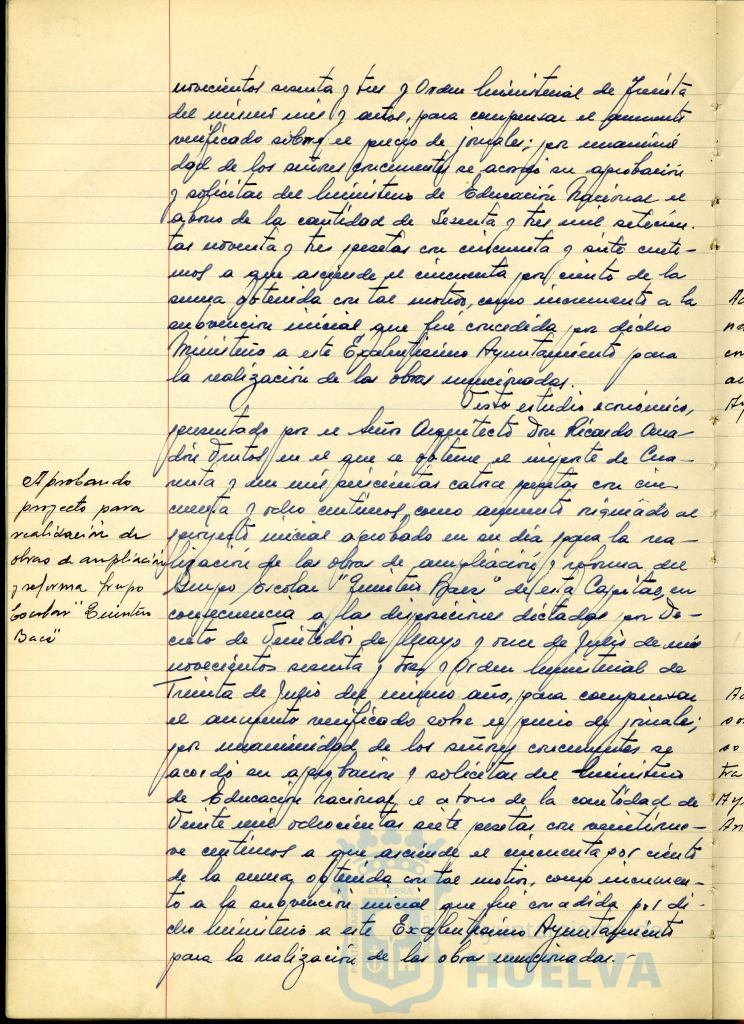 novecientos sesenta y tres y Orden Ministerial de Treinta
del mismo mes y año, para compensar el aumento
verificado sobre el precio de jornales; por unanimi-
dad de los señores concurrentes se acordó su aprobación
y solicitar del Ministerio de Educación Nacional el
abono de la cantidad de Sesenta y tres mil setecien-
tas noventa y tres pesetas con cincuenta y siete cénti-
mos a que asciende el cincuenta por ciento de la
suma obtenida con tal motivo, como incremento a la
subvención inicial que fué concedida por dicho
Ministerio a este Excelentísimo Ayuntamiento para
la realización de las obras mencionadas.
Visto estudio económico,
presentado por el Señor Arquitecto Don Ricardo Ana-
dón Frutos en el que se obtiene el importe de Cua-
renta y un mil seiscientas catorce pesetas con cin-
cuenta y ocho céntimos, como aumento originado al
proyecto inicial aprobado en su día para la rea-
lización de las obras de ampliación y reforma del
Grupo Escolar "Quintero Baez" de esta Capital, en
consecuencia a las disposiciones dictadas por De-
creto de Veintidós de Mayo y once de Julio de mil
novecientos sesenta y tres y Orden Ministerial de
Treinta de Julio del mismo año, para compensar
el aumento verificado sobre el precio de jornales;
por unanimidad de los señores concurrentes se
acordó su aprobación y solicitar del Ministerio
de Educación Nacional, el abono de la cantidad de
Veinte mil ochocientas siete pesetas con veintinue-
ve céntimos a que asciende el cincuenta por ciento
de la suma obtenida con tal motivo, como incremen-
to a la subvención inicial que fué concedida por di-
cho Ministerio a este Excelentísimo Ayuntamiento
para la realización de las obras mencionadas.-
Aprobando
proyecto para
realización de
obras de ampliación
y reforma Grupo
Escolar "Quintero
Baez"
Ayuntamiento de
HUELVA